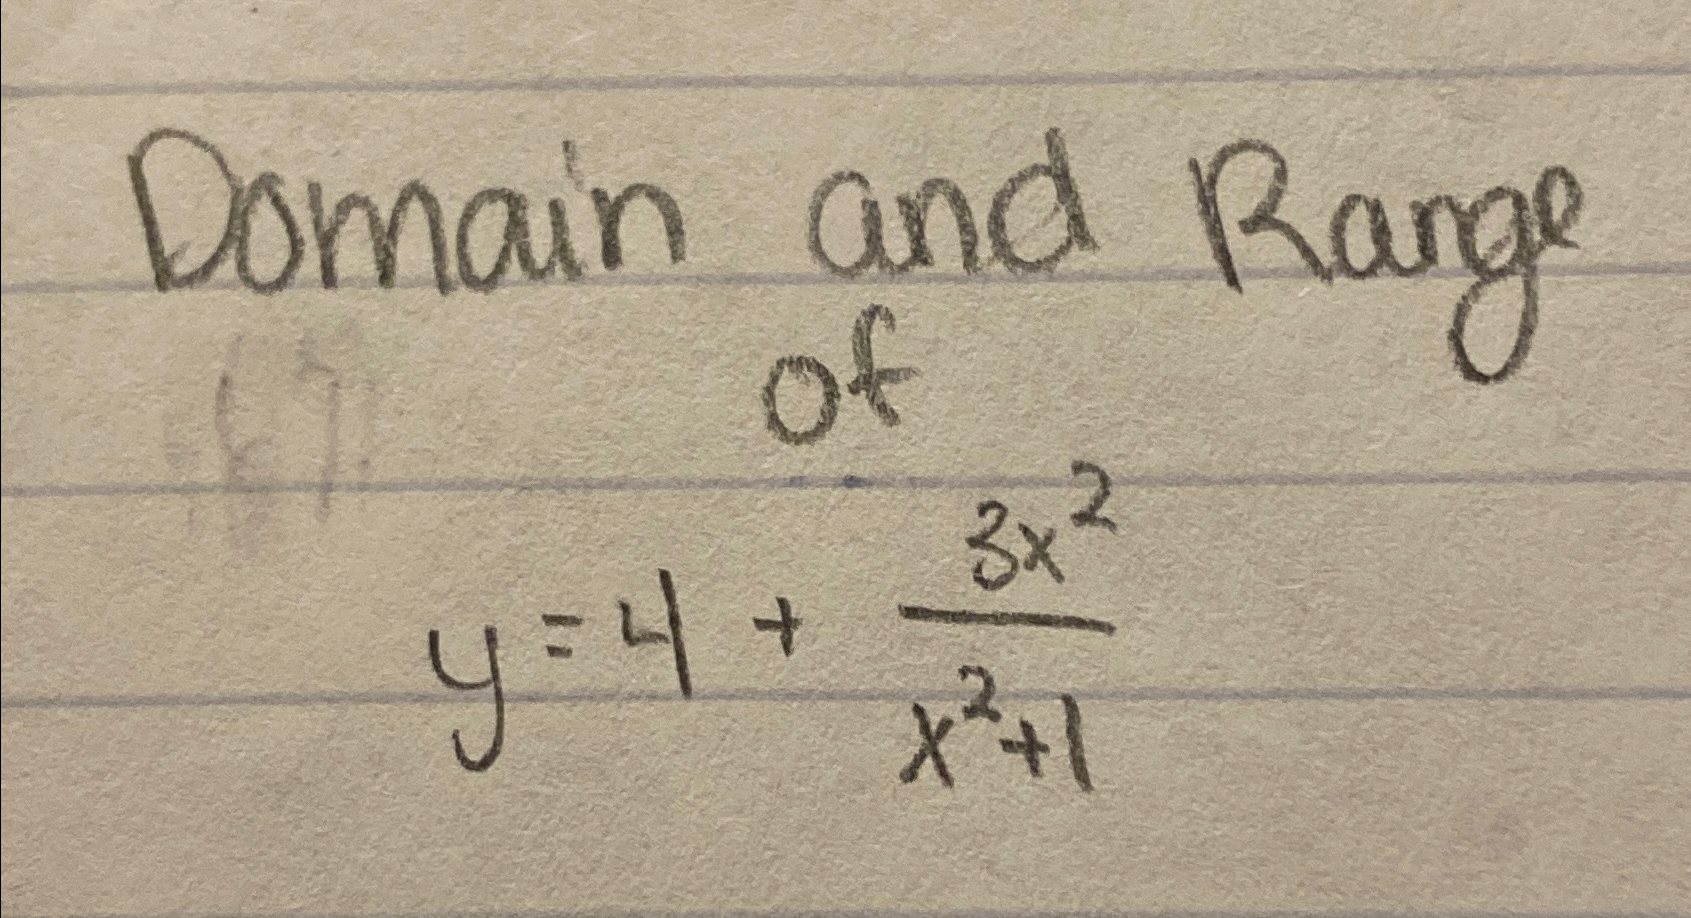 Domain and Range
of
y = 4 + 3x²/x²+1